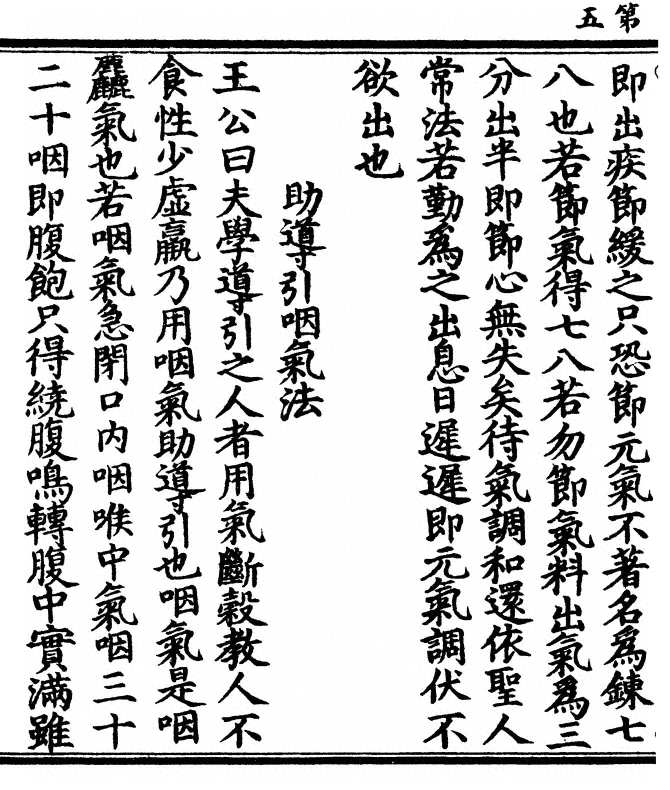 第五
即出疾節緩之只恐節元氣不著名爲鍊七
八也若節氣得七八若勿節氣料出氣爲三
分出半即節心無失矣待氣調和還依聖人
常法若勤爲之出息日遲遲即元氣調伏不
欲出也
助導引咽氣法
王公曰夫學導引之人者用氣斷穀教人不
食性少虛羸乃用咽氣助導引也咽氣是咽
麤氣也若咽氣急閉口内咽喉中氣咽三十
二十咽即腹飽只得繞腹鳴轉腹中實滿雖